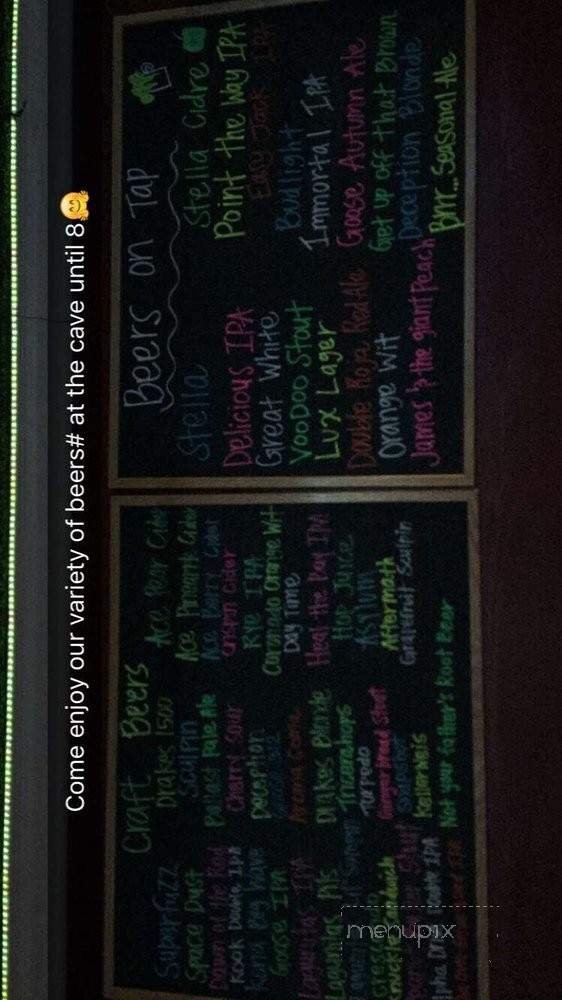 Come enjoy our variety of beers# at the cave until 8🤗
Craft Beers
Sugar Fuzz
Space Dust
Dawn of the Red
Kook Double IPA
Kona Big Wave
Goose IPA
Lagunitas IPA
Lagunitas Pils
Drakes 1500
Sculpin
Ballast Pale Ale
Cherry Sour
Deception
Aroma Coma
Drakes Blonde
Tricerahops
Torpedo
Gingerbread Stout
Kellerweis
Not your father's Root Beer
Ace Pear Cider
Ace Pineapple Cider
Ace Berry Cider
Crispin Cider
Rye IPA
Coronado Orange Wit
Day Time
Heal the Bay IPA
Hop Juice
Asylum
Aftermath
Grapefruit Sculpin
Beers on Tap
Stella
Delicious IPA
Great White
VooDoo Stout
Lux Lager
Double Roja Red Ale
Orange Wit
James & the giant Peach
Stella Cidre
Point the Way IPA
Easy Jack IPA
Budlight
Immortal IPA
Goose Autumn Ale
Get up off that Brown
Deception Blonde
Brrr...Seasonal Ale
menupix